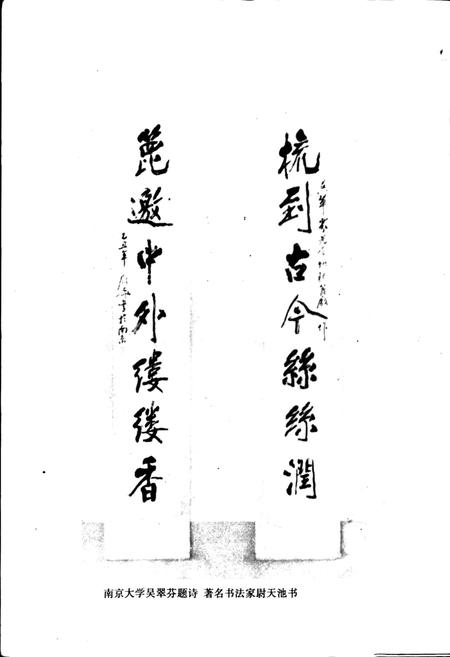 梳到古今絲絲潤
篦邀中外缕缕香
乙丑年
南京大学吴翠芬题诗 著名书法家尉天池书